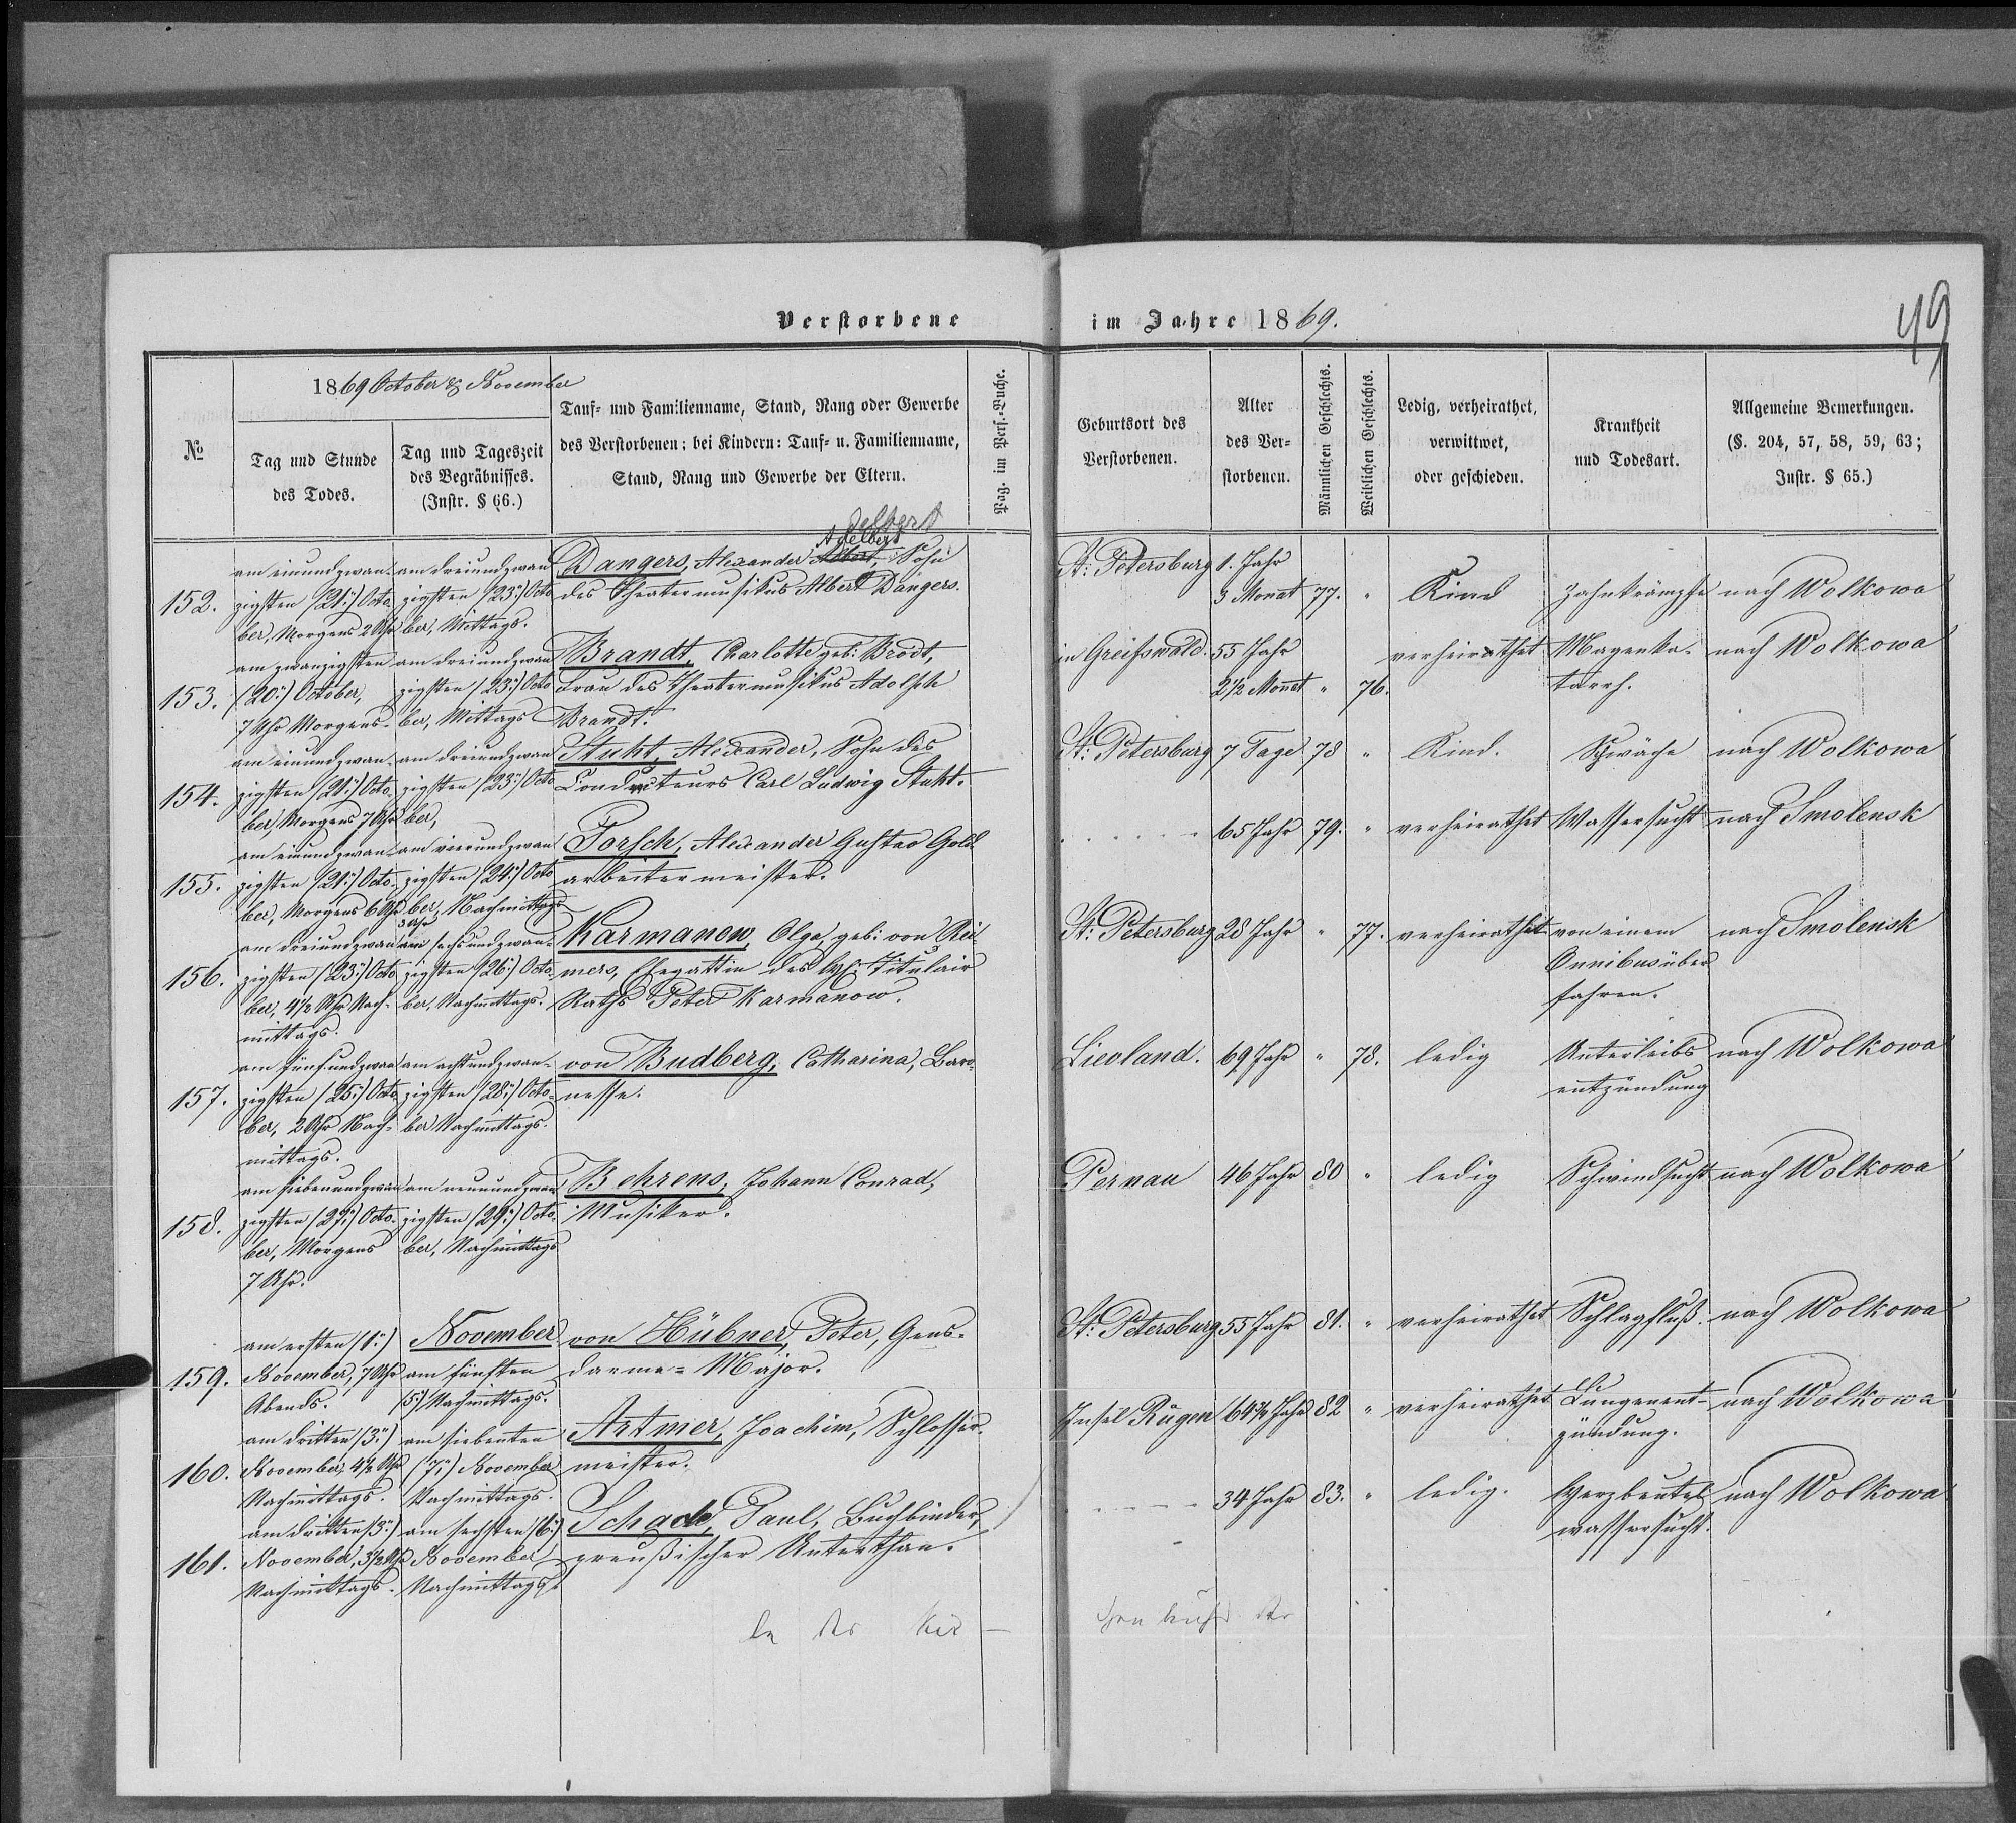 Verstorbene im Jahre 1869.
49
№
1869 October & November
Tag und Stunde
des Todes.
Tag und Tageszeit
des Begräbnisses.
(Instr. § 66.)
Tauf- und Familienname, Stand, Rang oder Gewerbe
des Verstorbenen; bei Kindern: Tauf- u. Familienname,
Stand, Rang und Gewerbe der Eltern.
Pag. im Pers.-Buche.
Geburtsort des
Verstorbenen.
Alter
des Ver-
storbenen.
Männlichen Geschlechts.
Weiblichen Geschlechts.
Ledig, verheirathet,
verwittwet,
oder geschieden.
Krankheit
und Todesart.
Allgemeine Bemerkungen.
(§. 204, 57, 58, 59, 63;
Instr. § 65.)
152.
am einundzwan-
zigsten (21.) Octo-
ber, Morgens 2 Uhr
am dreiundzwan
zigsten (23.) Octo
ber, Mittags.
delbert
Adelbert
Dangers, Alexander Albert, Sohn
des Theatermusikus Albert Dangers.
St. Petersburg
1. Jahr
3 Monat
77.
"
Kind
Zahnkrämpfe
nach Wolkowa
153.
am zwanzigsten
(20.) October,
7 Uhr Morgens.
am dreiundzwan
zigsten (23.) Octo
ber, Mittags
Brandt, Charlotte geb. Brodt,
Frau des Theatermusikus Adolph
Brandt.
in Greifswald.
55 Jahr
2½ Monat
"
76.
verheirathet
Magenka-
tarrh.
nach Wolkowa
154.
am einundzwan-
zigsten (21.) Octo-
ber, Morgens 7 Uhr
am dreiundzwan
zigsten (23.) Octo
ber,
Stuht, Alexander, Sohn des
Conducteurs Carl Ludwig Stuht.
St. Petersburg
7 Tage
78
"
Kind.
Schwäche
nach Wolkowa
155.
am einundzwan-
zigsten (21.) Octo-
ber, Morgens 6 Uhr
am vierundzwan
zigsten (24.) Octo
ber, Nachmittags
3 Uhr
Porsch, Alexander Gustav Gold
arbeitermeister.
65 Jahr
79.
"
verheirathet
Wassersucht
nach Smolensk
156.
am dreiundzwan
zigsten (23.) Octo
ber, 4½ Uhr Nach-
mittags.
am sechsundzwan-
zigsten (26.) Octo-
ber, Nachmittags.
Karmanow, Olga, geb. von Rei-
mers, Ehegattin des Titulair
Raths Peter Karmanow.
St. Petersburg
28 Jahr
"
77.
verheirathet
von einem
Omnibus über
fahren.
nach Smolensk
157.
am fünfundzwan
zigsten (25.) Octo-
ber, 2 Uhr Nach-
mittags.
am achtundzwan-
zigsten (28.) Octo-
ber Nachmittags.
von Budberg, Catharina, Baro-
nesse.
Lievland.
69 Jahr
"
78.
ledig
Unterleibs
entzündung
nach Wolkowa
158.
am siebenundzwan
zigsten (27.) Octo-
ber, Morgens
7 Uhr.
am neunundzwan
zigsten (29.) Octo-
ber, Nachmittags
Behrens, Johann Conrad,
Musiker.
Pernau
46 Jahr
80
"
ledig
Schwindsucht
nach Wolkowa
159.
am ersten (1.)
November, 7 Uhr
Abends.
November
am fünften
(5.) Nachmittags.
von Hübner, Peter, Gens-
darme-Major.
St. Petersburg
55 Jahr
81.
"
verheirathet
Schlagfluß.
nach Wolkowa
160.
am dritten (3.)
November, 4½ Uhr
Nachmittags.
am siebenten
(7.) November
Nachmittags.
Artmer, Joachim, Schlosser-
meister.
Insel Rügen
Jahr
82
"
verheirathet
Lungenent-
zündung.
nach Wolkowa
161.
am dritten (3.)
November, 3½ Uhr
Nachmittags.
am sechsten (6.)
November
Nachmittags.
Schade, Paul, Buchbinder,
preußischer Unterthan.
34 Jahr
83.
"
ledig.
Herzbeutel
wassersucht.
nach Wolkowa